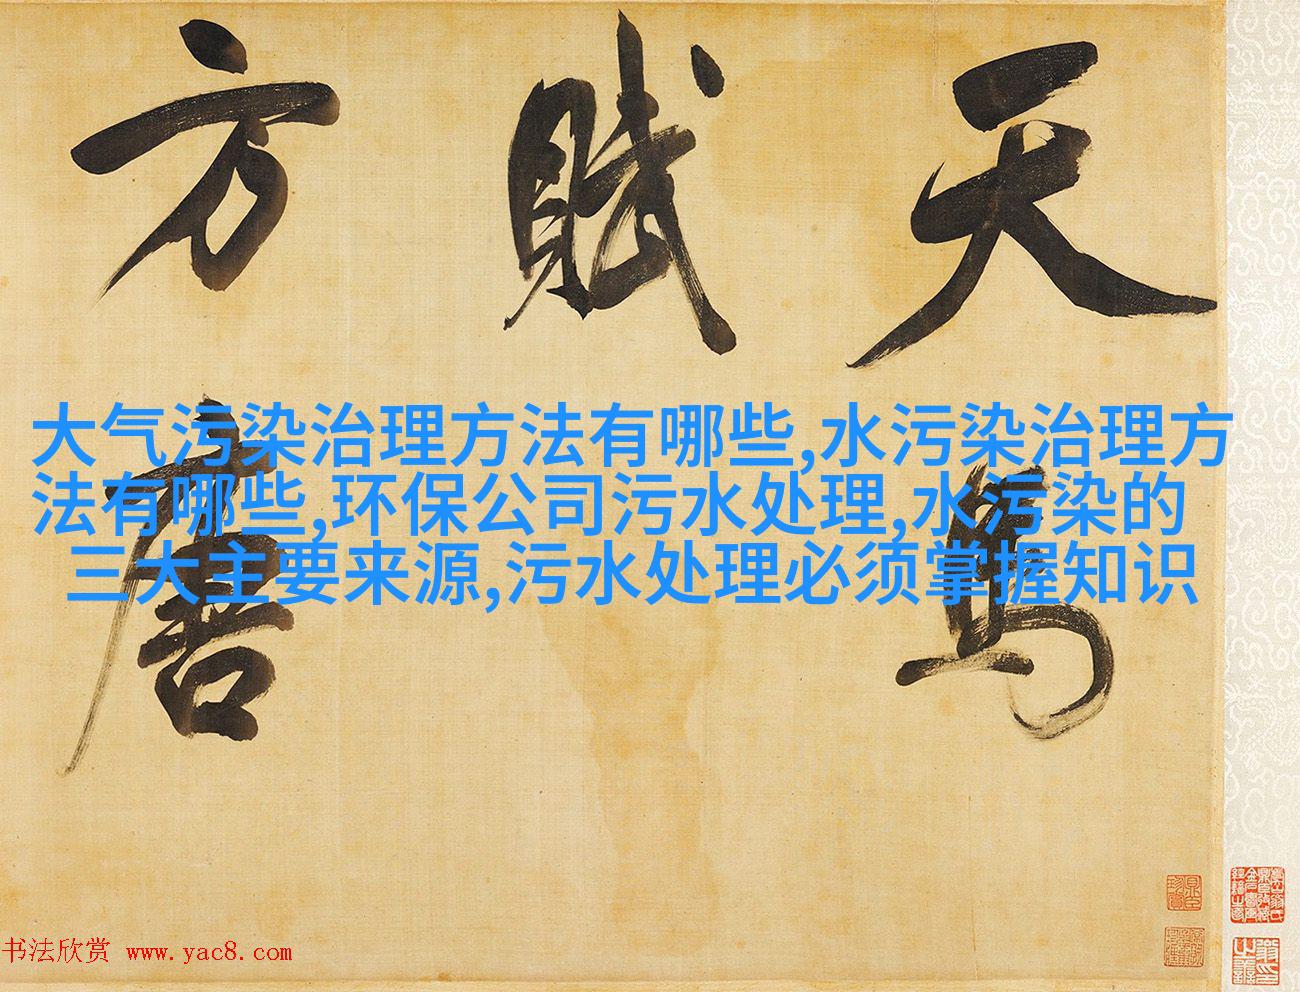 天馬
賦
方唐
大气污染治理方法有哪些,水污染治理方
法有哪些,环保公司污水处理,水污染的
三大主要来源,污水处理必须掌握知识
书法欣赏 www.yac8.com